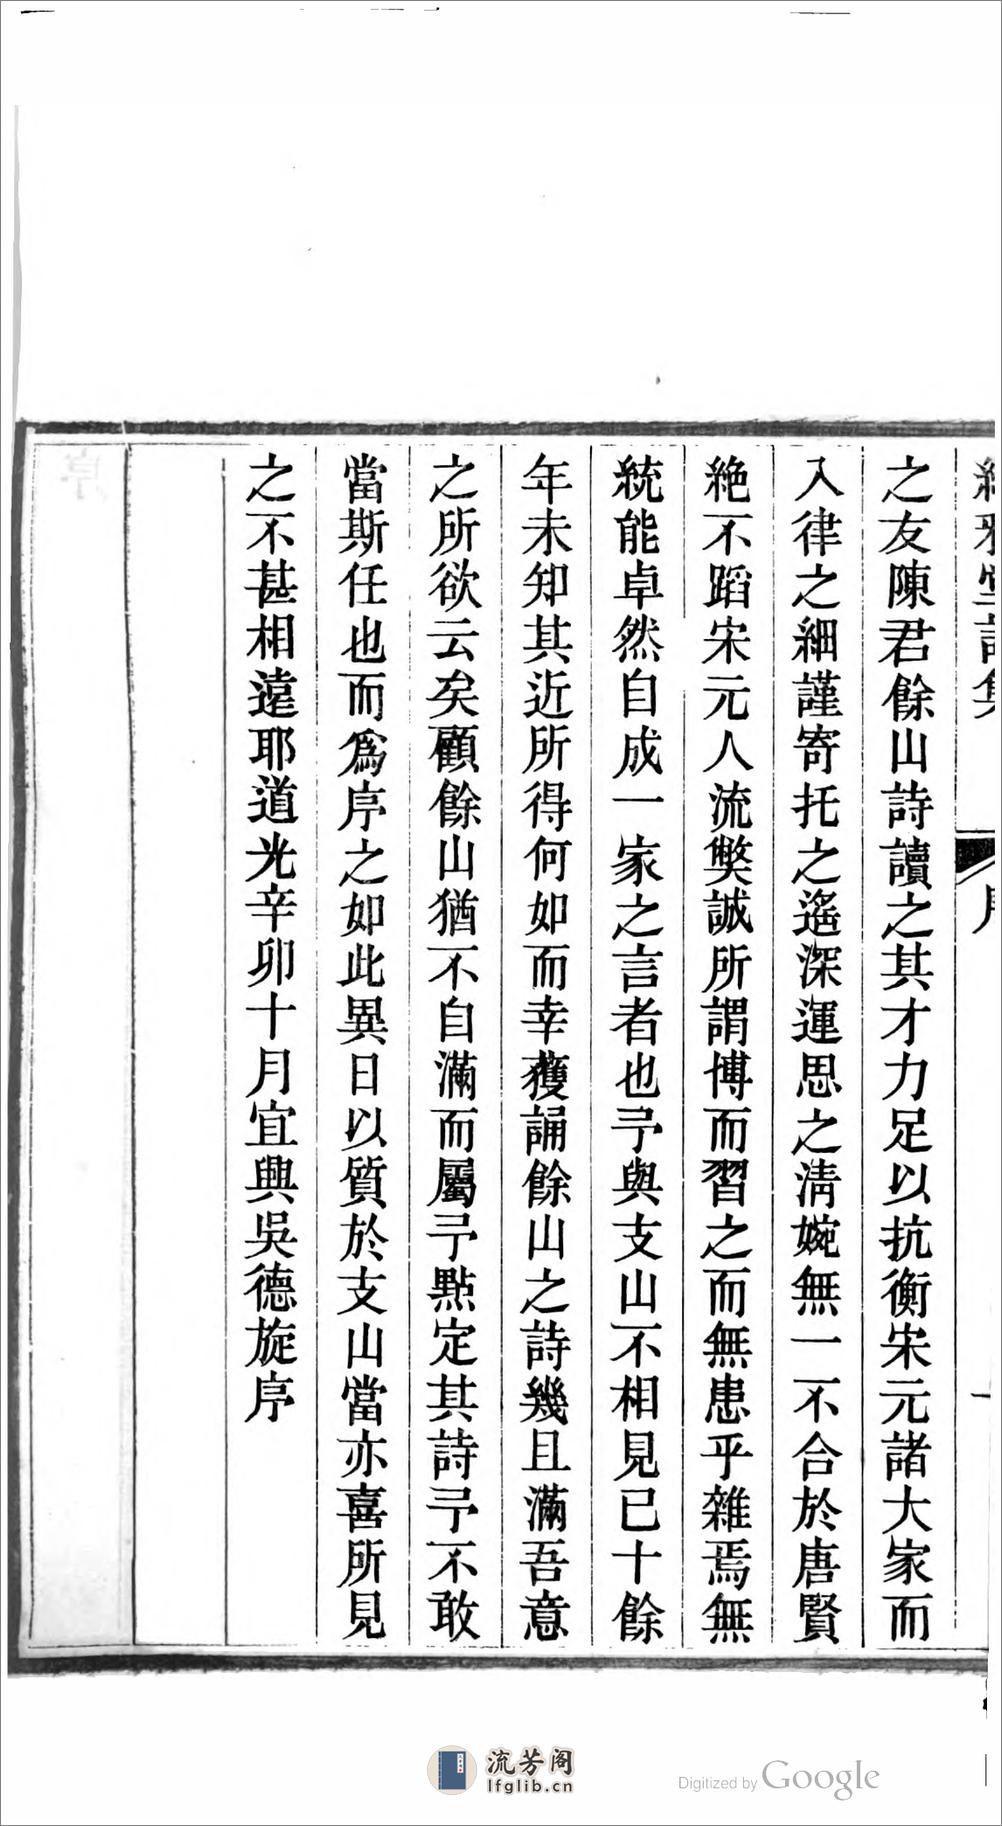 之友陳君餘山詩讀之其才力足以抗衡宋元諸大家而
入律之細謹寄托之遙深運思之淸婉無一不合於唐賢
絶不蹈宋元人流獘誠所謂博而習之而無患乎雜焉無
統能卓然自成一家之言者也予與支山不相見已十餘
年未知其近所得何如而幸獲誦餘山之詩幾且滿吾意
之所欲云矣顧餘山猶不自滿而屬予點定其詩予不敢
當斯任也而爲序之如此異日以質於支山當亦喜所見
之不甚相遠耶道光辛卯十月宜興吳德旋序
流芳阁
lfglib.cn
Digitized by Google